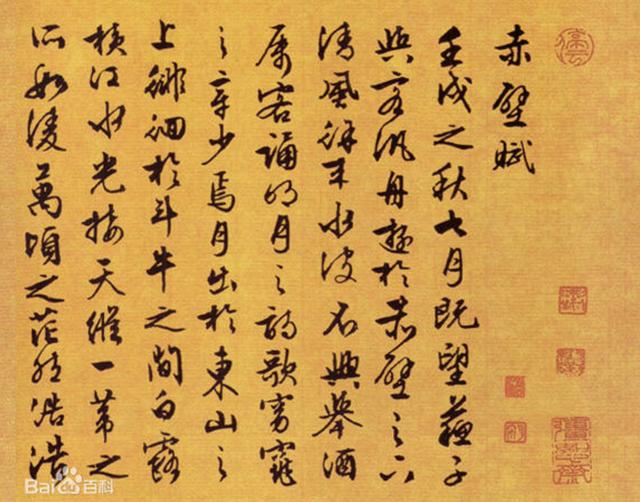 赤壁賦
壬戌之秋七月既望蘇子
與客汎舟遊於赤壁之下
清風徐來水波不興舉酒
屬客誦明月之詩歌窈窕
之章少焉月出於東山之
上徘徊於斗牛之間白露
橫江水光接天縱一葦之
所如凌萬頃之茫然浩浩
Baidu百科